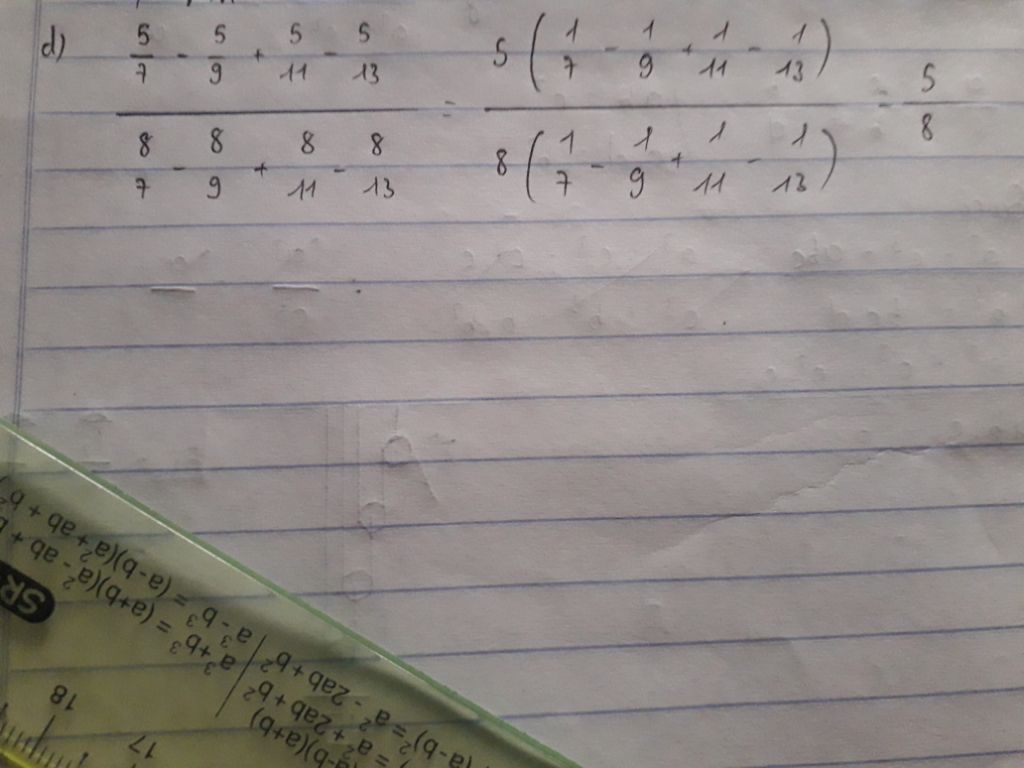 d) 5/7 - 5/9 + 5/11 - 5/13 / 8/7 - 8/9 + 8/11 - 8/13 = 5 (1/7 - 1/9 + 1/11 - 1/13) / 8 (1/7 - 1/9 + 1/11 - 1/13) = 5/8
(a-b)(a²+ab+b²
a³-b³ =
(a+b)(a²-ab+b
a³+b³ =
a²-2ab+b²
(a-b)²=
= a²+2ab+b²
(a-b)(a+b)
SR
18
17